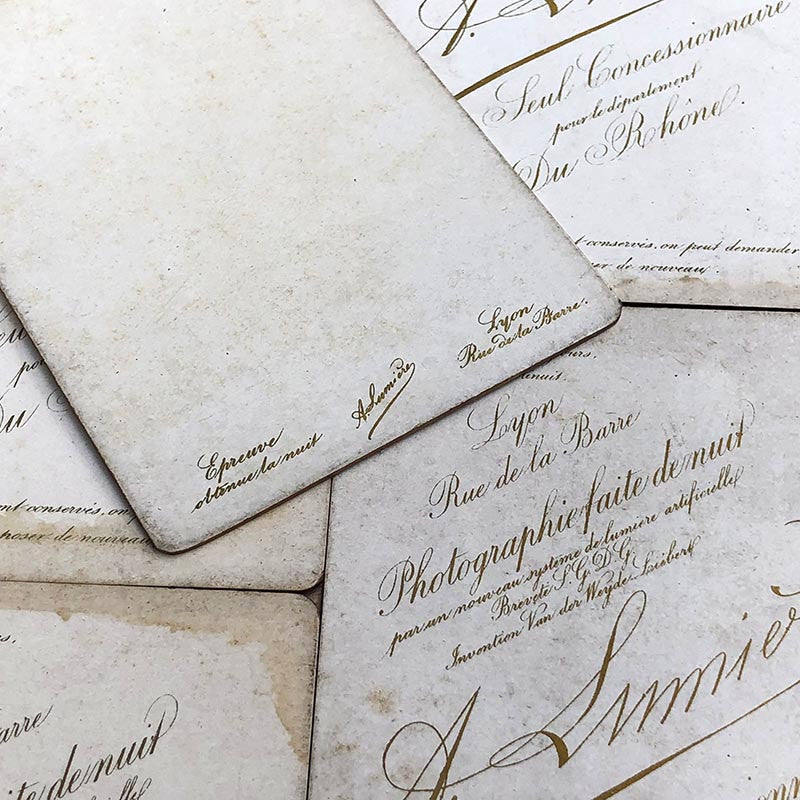 A. L
Seul Concessionnaire
pour le département
Du Rhône.
t conservés, on peut demander
ser de nouveau.
Epreuve
obtenue la nuit
A. Lumière
Lyon
Rue de la Barre.
Du
nt conservés, on p
poser de nouveau
Lyon
Rue de la Barre
Photographie faite de nuit
par un nouveau système de lumière artificielle
Breveté S.G.D.G.
Invention Van der Weyde-Liébert
A. Lumiè
arre
te de nuit